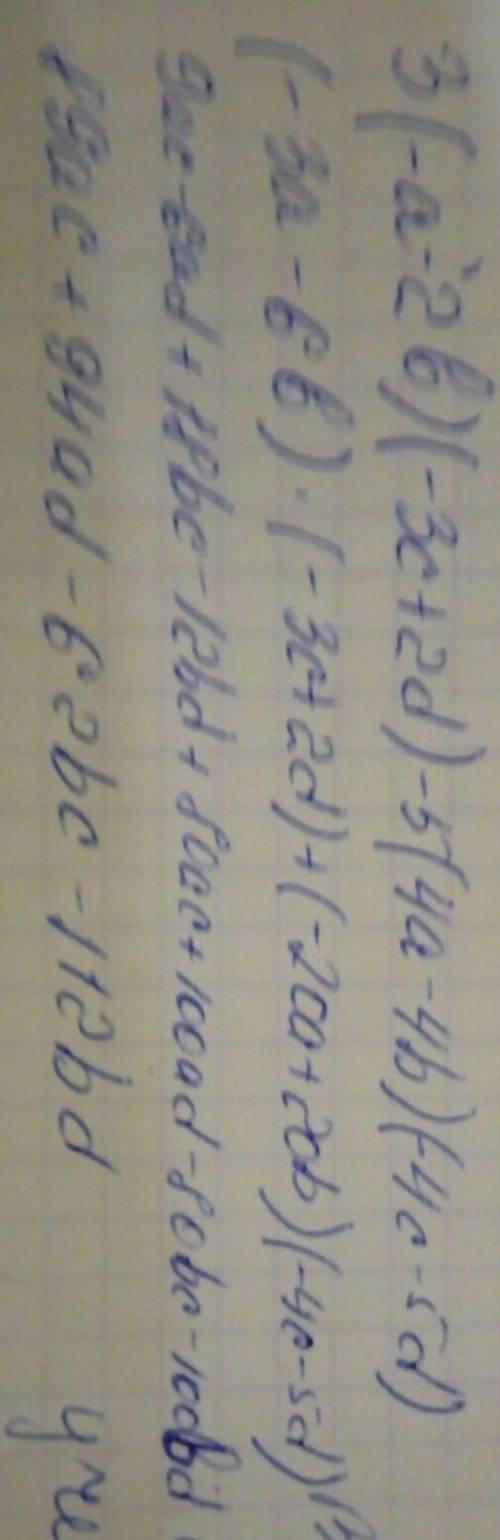 3(-a-2b)(-3c+2d)-5(4a-4b)(-4c-5d)
(-3a-6b)·(-3c+2d)+(-20a+20b)(-4c-5d)
9ac-6ad+18bc-12bd+80ac+100ad-80bc-100bd
89ac+94ad-62bc-112bd